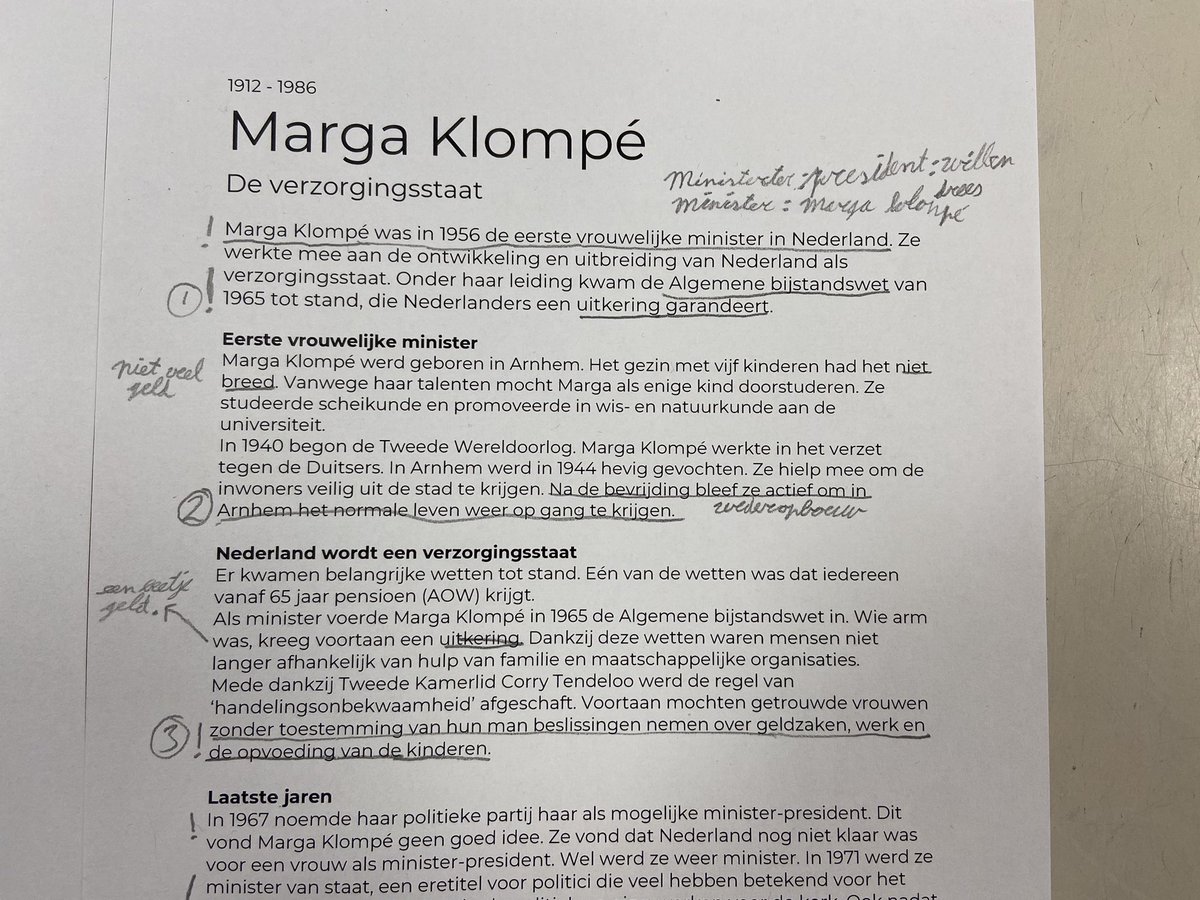 1912 - 1986
Marga Klompé
De verzorgingsstaat
president: willen
drees
minister: Marga
! Marga Klompé was in 1956 de eerste vrouwelijke minister in Nederland. Ze
werkte mee aan de ontwikkeling en uitbreiding van Nederland als
! verzorgingsstaat. Onder haar leiding kwam de Algemene bijstandswet van
1 1965 tot stand, die Nederlanders een uitkering garandeert.
Eerste vrouwelijke minister
Marga Klompé werd geboren in Arnhem. Het gezin met vijf kinderen had het niet
niet veel
geld
breed. Vanwege haar talenten mocht Marga als enige kind doorstuderen. Ze
studeerde scheikunde en promoveerde in wis- en natuurkunde aan de
universiteit.
In 1940 begon de Tweede Wereldoorlog. Marga Klompé werkte in het verzet
tegen de Duitsers. In Arnhem werd in 1944 hevig gevochten. Ze hielp mee om de
inwoners veilig uit de stad te krijgen. Na de bevrijding bleef ze actief om in
2 Arnhem het normale leven weer op gang te krijgen. wederopbouw
Nederland wordt een verzorgingsstaat
Er kwamen belangrijke wetten tot stand. Eén van de wetten was dat iedereen
een beetje
geld.
vanaf 65 jaar pensioen (AOW) krijgt.
Als minister voerde Marga Klompé in 1965 de Algemene bijstandswet in. Wie arm
was, kreeg voortaan een uitkering. Dankzij deze wetten waren mensen niet
langer afhankelijk van hulp van familie en maatschappelijke organisaties.
Mede dankzij Tweede Kamerlid Corry Tendeloo werd de regel van
‘handelingsonbekwaamheid’ afgeschaft. Voortaan mochten getrouwde vrouwen
3 ! zonder toestemming van hun man beslissingen nemen over geldzaken, werk en
de opvoeding van de kinderen.
Laatste jaren
! In 1967 noemde haar politieke partij haar als mogelijke minister-president. Dit
vond Marga Klompé geen goed idee. Ze vond dat Nederland nog niet klaar was
voor een vrouw als minister-president. Wel werd ze weer minister. In 1971 werd ze
! minister van staat, een eretitel voor politici die veel hebben betekend voor het